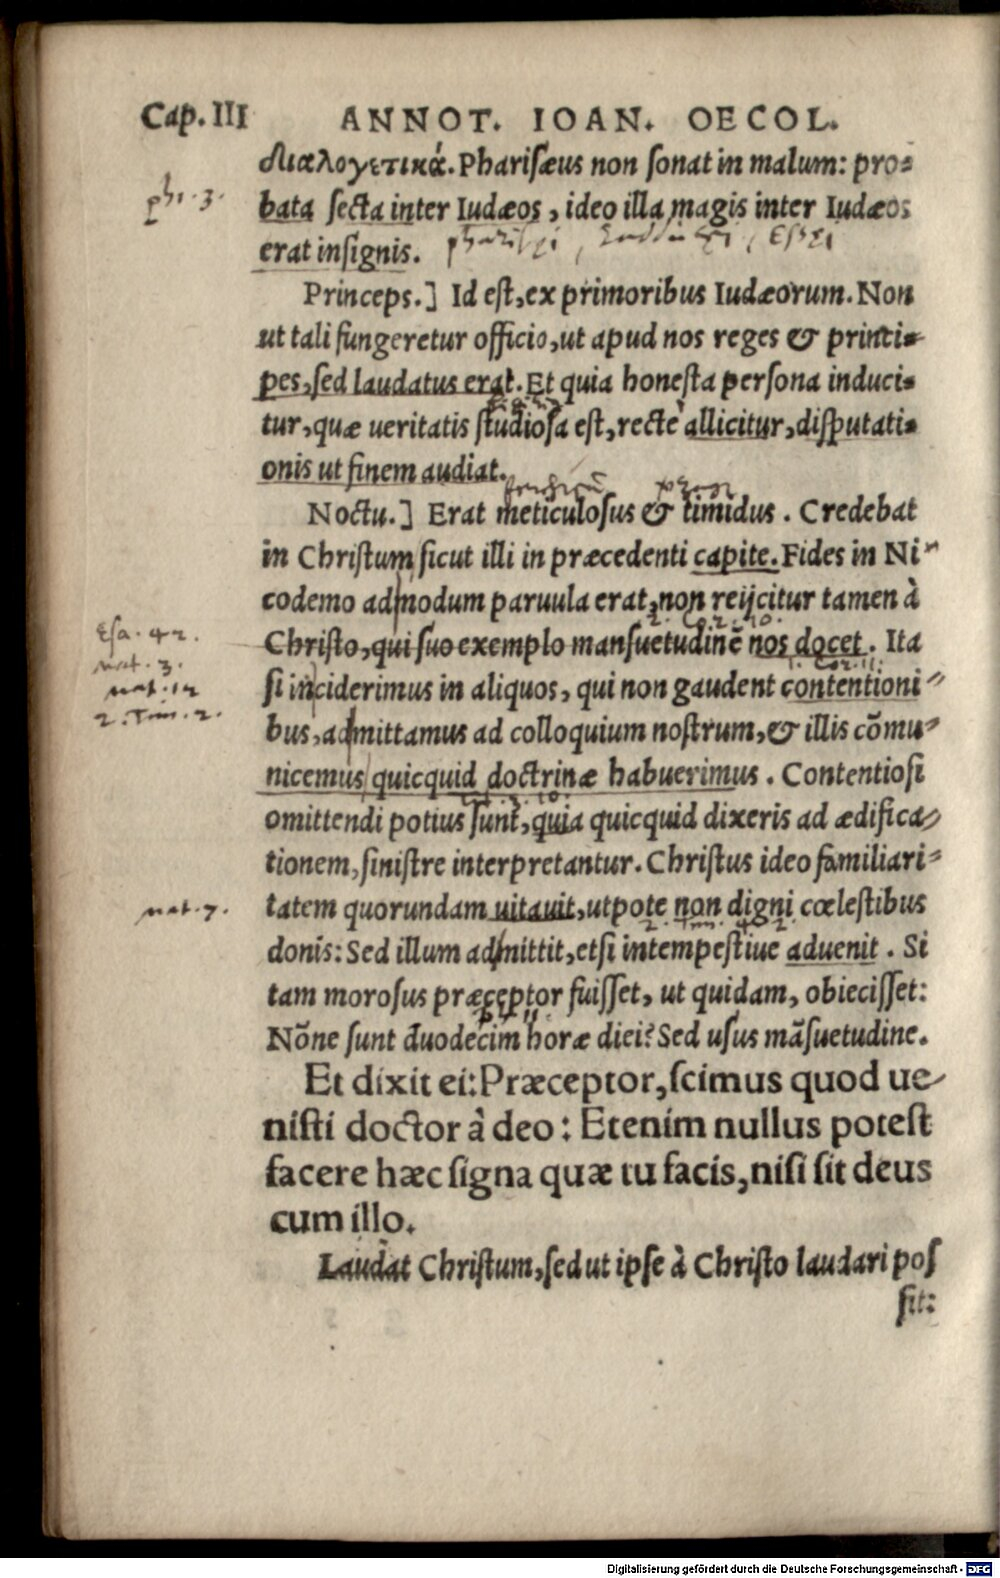 Cap. III ANNOT. IOAN. OECOL.
διαλογετικά. Phariſæus non ſonat in malum: pro-
phi. 3.
bata ſecta inter Iudæos, ideo illa magis inter Iudæos
erat inſignis.
Princeps.] Id eſt, ex primoribus Iudæorum. Non
ut tali fungeretur officio, ut apud nos reges & princi-
pes, ſed laudatus erat. Et quia honeſta perſona induci-
tur, quæ ueritatis ſtudioſa eſt, recte allicitur, diſputati-
onis ut finem audiat.
Noctu.] Erat meticuloſus & timidus. Credebat
in Chriſtum ſicut illi in præcedenti capite. Fides in Ni-
codemo admodum paruula erat, non reijcitur tamen à
2. Co. 2. 10.
Esa. 42.
Chriſto, qui ſuo exemplo manſuetudinẽ nos docet. Ita
mat. 3.
1. Cor. 11.
mat. 12
ſi inciderimus in aliquos, qui non gaudent contentioni-
2. Tim. 2.
bus, admittamus ad colloquium noſtrum, & illis cõmu-
nicemus quicquid doctrinæ habuerimus. Contentioſi
omittendi potius ſunt, quia quicquid dixeris ad ædifica-
tionem, ſiniſtre interpretantur. Chriſtus ideo familiari-
mat. 7.
tatem quorundam uitauit, utpote non digni cœleſtibus
donis: Sed illum admittit, etſi intempeſtiue aduenit. Si
tam moroſus præceptor fuiſſet, ut quidam, obieciſſet:
Nõne ſunt duodecim horæ diei? Sed uſus mãſuetudine.
Et dixit ei: Præceptor, ſcimus quod ue-
niſti doctor à deo: Etenim nullus poteſt
facere hæc ſigna quæ tu facis, niſi ſit deus
cum illo.
Laudat Chriſtum, ſed ut ipſe à Chriſto laudari poſ
ſit:
Digitalisierung gefördert durch die Deutsche Forschungsgemeinschaft - DFG